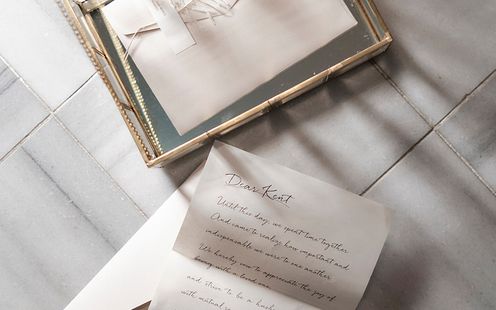 Dear Kent
Until this day, we spent time together
And came to realize how important and
indispensable we were to one another
We hereby vow to appreciate the joy of
being with a loved one
and strive to be a husb
with mutual